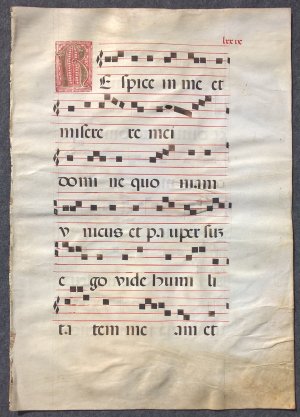 lxxix
RE spice in me et
misere re mei
domi ne quo niam
v nicus et pa uper suz
e go vide humi li
ta tem me am et